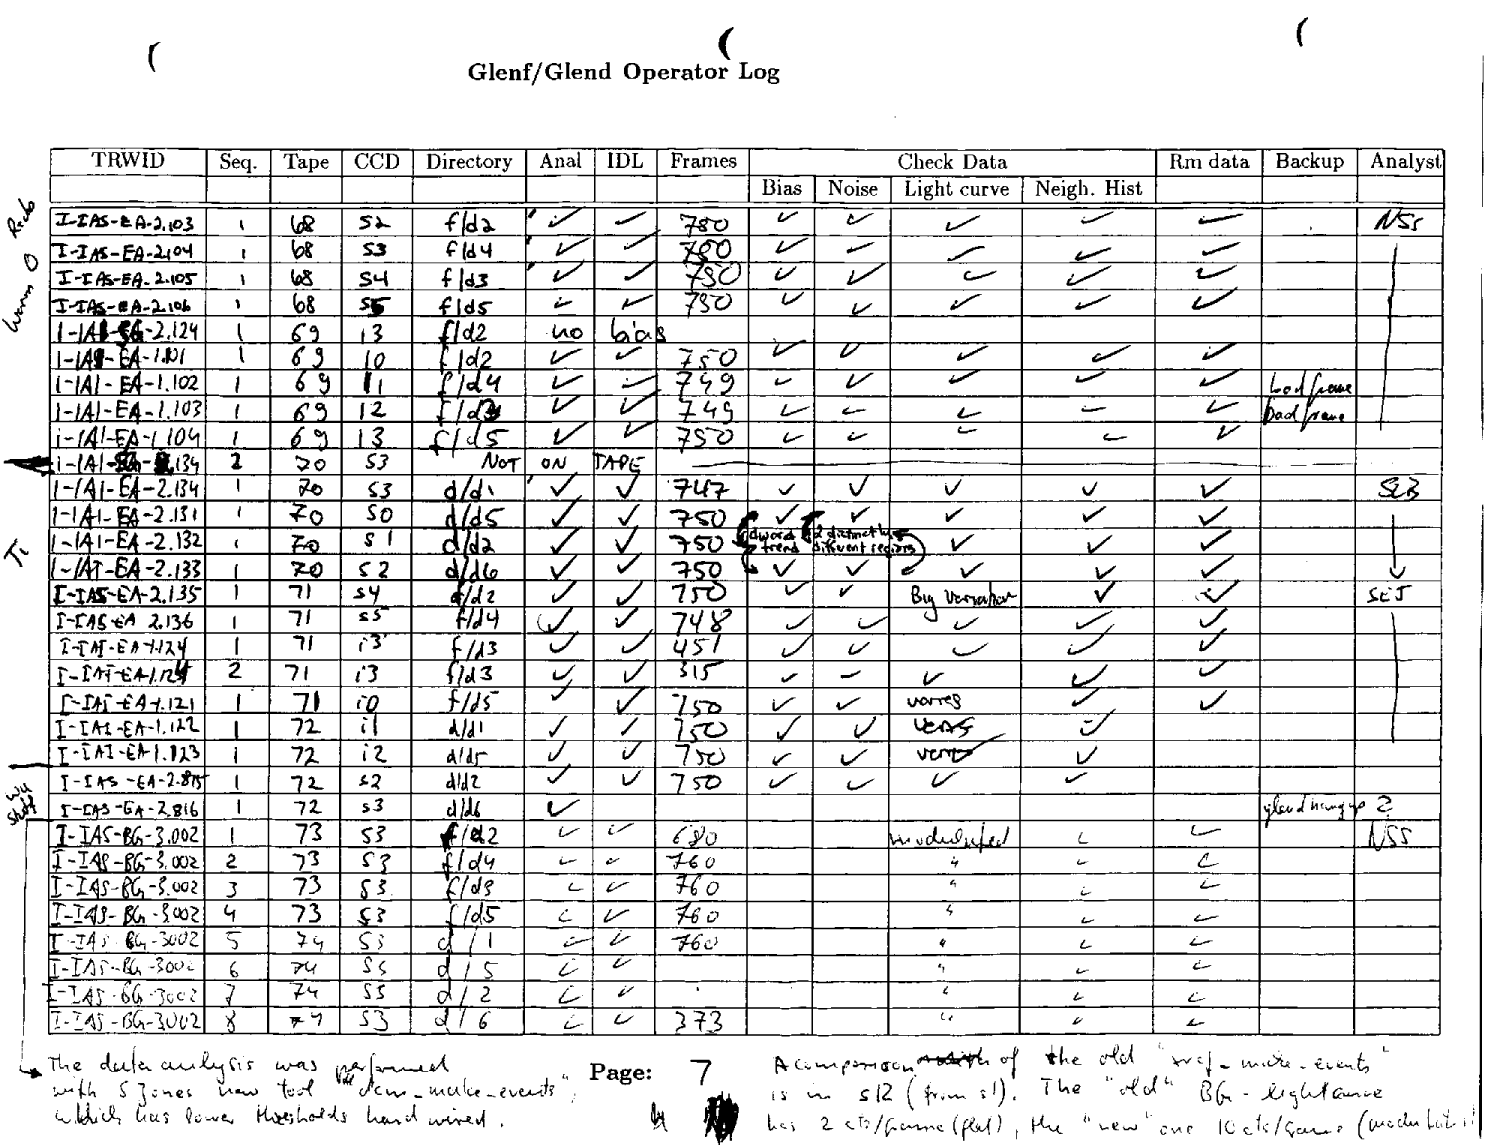 Glenf/Glend Operator Log
TRWID Seq. Tape CCD Directory Anal IDL Frames Check Data Rm data Backup Analyst
Bias Noise Light curve Neigh. Hist
I-IAS-EA-2.103 1 68 S2 f/d2 ✓ ✓ 780 ✓ ✓ ✓ ✓ ✓ NSS
I-IAS-EA-2.104 1 68 S3 f/d4 ✓ ✓ 780 ✓ ✓ ✓ ✓ ✓
I-IAS-EA-2.105 1 68 S4 f/d3 ✓ ✓ 750 ✓ ✓ ✓ ✓ ✓
I-IAS-EA-2.106 1 68 S5 f/d5 ✓ ✓ 750 ✓ ✓ ✓ ✓ ✓
-2.124 1 69 13 f/d2 no bias
EA-1.101 1 69 10 f/d2 ✓ ✓ 750 ✓ ✓ ✓ ✓ ✓
I-IAI-EA-1.102 1 69 11 f/d4 ✓ ✓ 749 ✓ ✓ ✓ ✓ ✓ bad frame
I-IAI-EA-1.103 1 69 12 f/d3 ✓ ✓ 749 ✓ ✓ ✓ ✓ ✓ bad frame
I-IAI-EA-1.104 1 69 13 f/d5 ✓ ✓ 750 ✓ ✓ ✓ ✓ ✓
2 70 S3 NOT ON TAPE
I-IAI-EA-2.134 1 70 S3 d/d1 ✓ ✓ 747 ✓ ✓ ✓ ✓ ✓ SEB
I-IAI-EA-2.131 1 70 S0 d/d5 ✓ ✓ 750 ✓ ✓ ✓ ✓ ✓
I-IAI-EA-2.132 1 70 S1 d/d2 ✓ ✓ 750 trend 2 distinctly different regions ✓ ✓ ✓
I-IAI-EA-2.133 1 70 S2 d/d6 ✓ ✓ 750 ✓ ✓ ✓ ✓ ✓
I-IAS-EA-2.135 1 71 S4 d/d2 ✓ ✓ 750 ✓ ✓ Big variation ✓ ✓ SEJ
I-IAS-EA 2.136 1 71 S5 f/d4 ✓ ✓ 748 ✓ ✓ ✓ ✓ ✓
I-IAI-EA-1.124 1 71 i3 f/d3 ✓ ✓ 451 ✓ ✓ ✓ ✓ ✓
I-IAI-EA-1.124 2 71 i3 f/d3 ✓ ✓ 315 ✓ ✓ ✓ ✓ ✓
I-IAI-EA-1.121 1 71 i0 f/d5 ✓ ✓ 750 varies ✓ ✓
I-IAI-EA-1.122 1 72 i1 d/d1 ✓ ✓ 750 ✓ ✓ varies ✓
I-IAI-EA-1.123 1 72 i2 d/d5 ✓ ✓ 750 ✓ ✓ varies ✓
I-IAS-EA-2.815 1 72 S2 d/d2 ✓ ✓ 750 ✓ ✓ ✓ ✓
I-IAS-EA-2.816 1 72 S3 d/d6 ✓ glend hangup ?
I-IAS-BG-3.002 1 73 S3 f/d2 ✓ ✓ 680 modulated ✓ ✓ NSS
I-IAS-BG-3.002 2 73 S3 f/d4 ✓ ✓ 760 " ✓ ✓
I-IAS-BG-3.002 3 73 S3 f/d3 ✓ ✓ 760 " ✓ ✓
I-IAS-BG-3002 4 73 S3 f/d5 ✓ ✓ 760 " ✓ ✓
I-IAS-BG-3002 5 74 S3 d/1 ✓ ✓ 760 " ✓ ✓
I-IAS-BG-3002 6 74 S3 d/5 ✓ ✓ " ✓ ✓
I-IAS-BG-3002 7 74 S3 d/2 ✓ ✓ " ✓ ✓
I-IAS-BG-3002 8 74 S3 d/6 ✓ ✓ 373 " ✓ ✓
Ti
The data analysis was performed
with S Jones new tool "dcm-make-events",
which has lower thresholds hard wired.
Page: 7
A comparison of the old make-events"
is in s12 (from s1). The "old" BG-lightcurve
has 2 cts/frame (flat), the "new" one 10 cts/frame